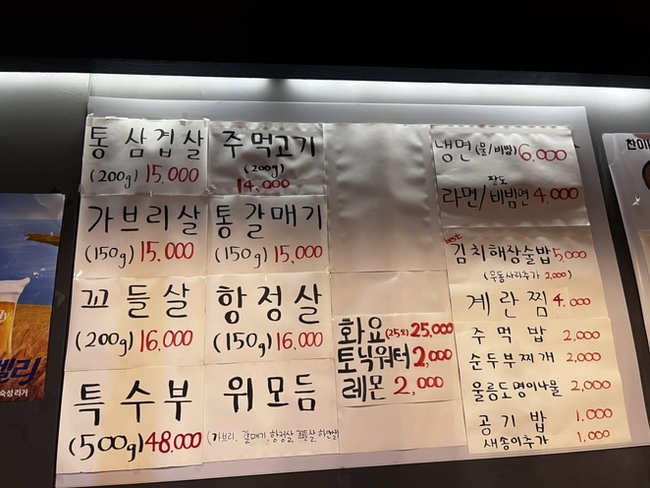 통삼겹살
(200g) 15,000
주먹고기
(200g)
14,000
가브리살
(150g) 15,000
통갈매기
(150g) 15,000
꼬들살
(200g) 16,000
항정살
(150g) 16,000
특수부
(500g) 48,000
위모듬
(가브리, 갈매기, 항정살, 꼬들살,
화요 (25도) 25,000
토닉워터 2,000
레몬 2,000
냉면 (물/비빔) 6,000
라면/비빔면 4,000
best
김치해장술밥 5,000
(우동사리추가 2,000)
계란찜 4,000
주먹밥 2,000
순두부찌개 2,000
울릉도명이나물 2,000
공기밥 1,000
새송이추가 1,000